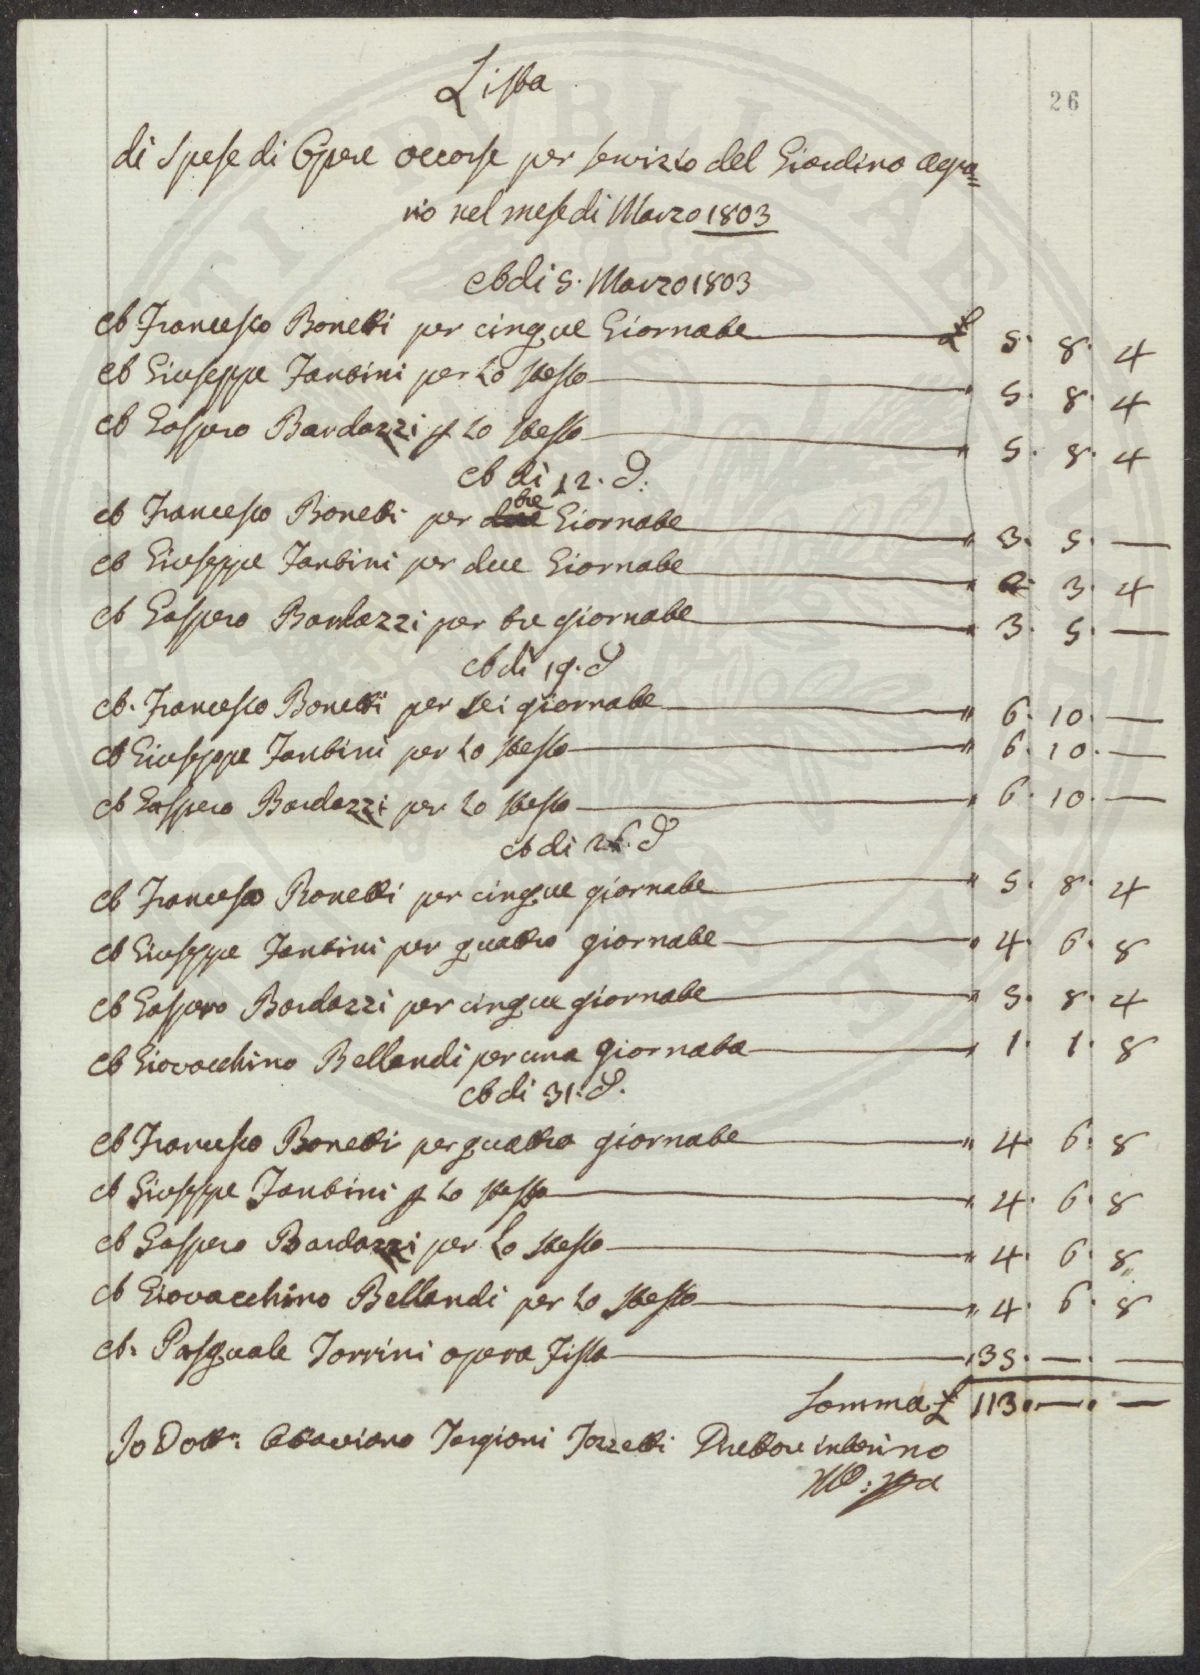 26
Lista
di Spese di Opere occorse per servizio del Giardino Agra=
rio nel mese di Marzo 1803
A dì 5. Marzo 1803
A Francesco Bonetti per cinque Giornate £ 5. 8. 4
A Giuseppe Fantini per Lo stesso " 5. 8. 4
A Gaspero Bardazzi p Lo stesso " 5. 8. 4
A dì 12. d.
A Francesco Bonetti per due tre Giornate " 3. 5. —
A Giuseppe Fantini per due Giornate " 2. 3. 4
A Gaspero Bardazzi per tre giornate " 3. 5. —
A dì 19. d
A. Francesco Bonetti per sei giornate " 6. 10. —
A Giuseppe Fantini per Lo stesso " 6. 10. —
A Gaspero Bardazzi per Lo stesso " 6. 10. —
A dì 26. d
A Francesco Bonetti per cinque giornate " 5. 8. 4
A Giuseppe Fantini per quattro giornate " 4. 6. 8
A Gaspero Bardazzi per cinque giornate " 5. 8. 4
A Giovacchino Bellandi per una giornata " 1. 1. 8
A dì 31. d.
A Francesco Bonetti per quattro giornate " 4. 6. 8
A Giuseppe Fantini p Lo stesso " 4. 6. 8
A Gaspero Bardazzi per Lo stesso " 4. 6. 8
A Giovacchino Bellandi per Lo stesso " 4. 6. 8
A. Pasquale Torrini opera fissa " 35. — —
Somma £ 113. — . —
Io Dott.r Ottaviano Targioni Tozzetti Direttore interino